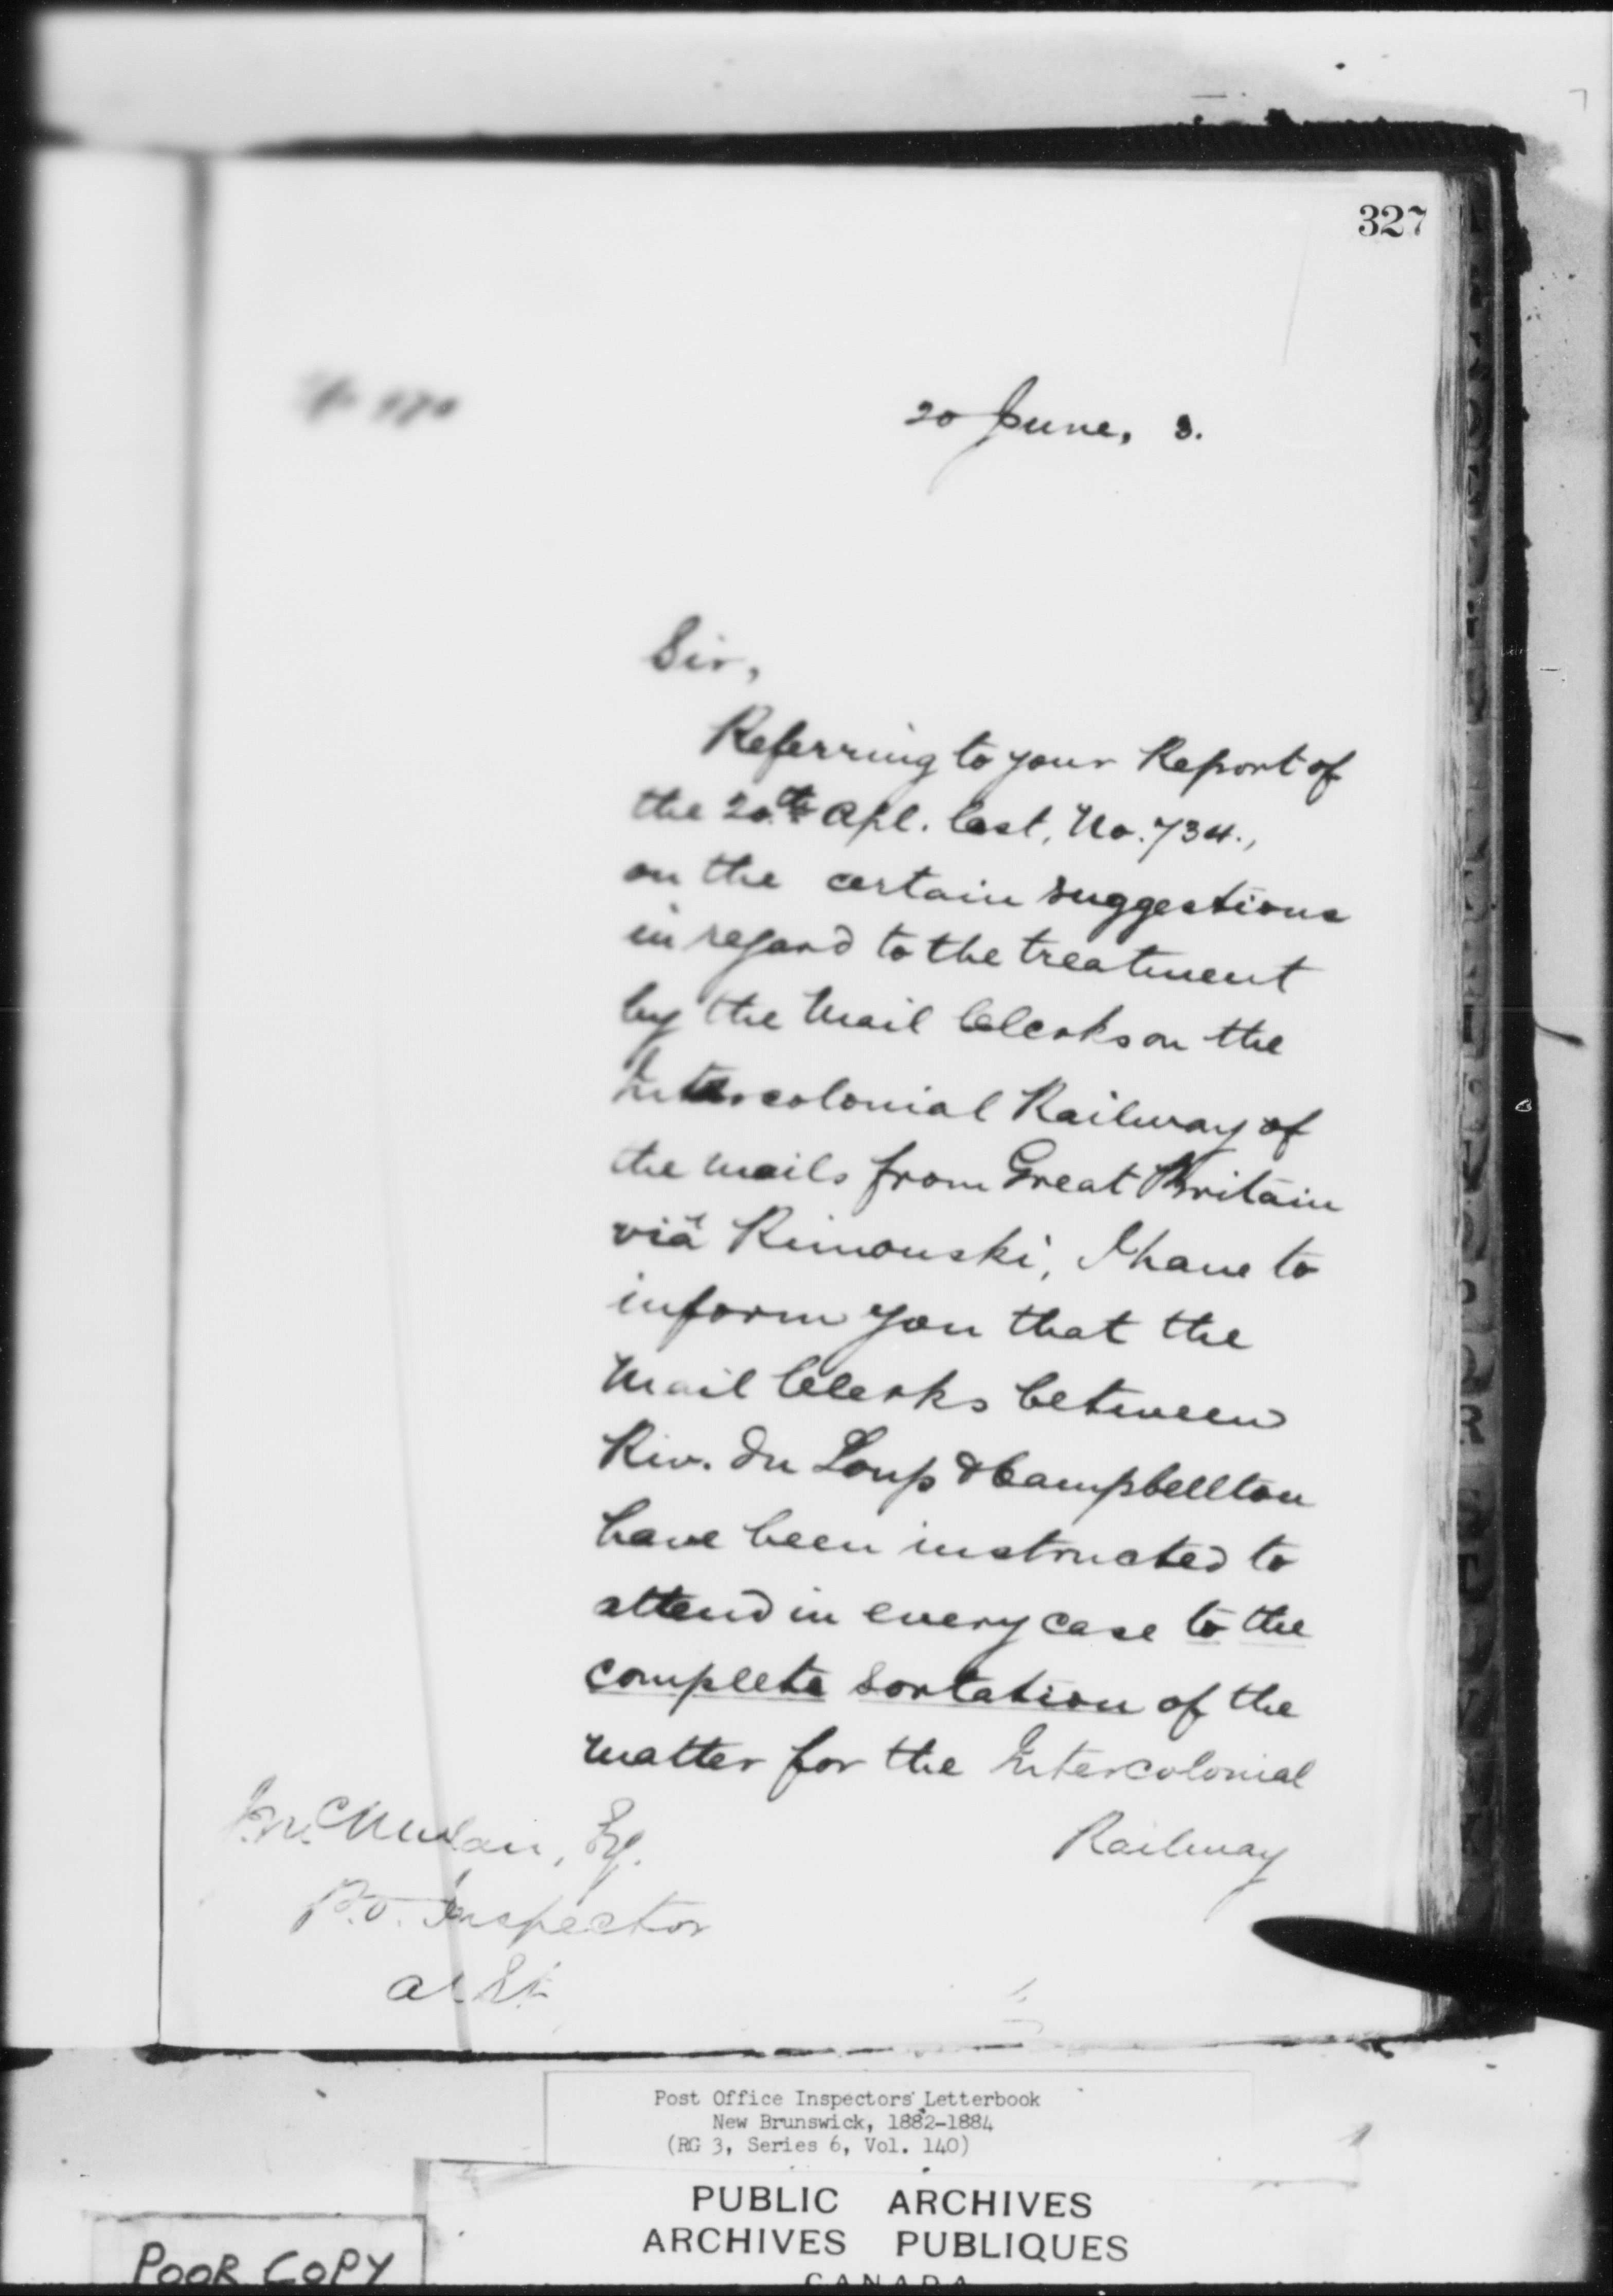 327
20 June, 3.
Sir,
Referring to your Report of
the 20th Apl. last, No. 734.,
on the certain suggestions
in regard to the treatment
by the Mail Clerks on the
Intercolonial Railway of
the mails from Great Britain
viâ Rimouski, I have to
inform you that the
Mail Clerks between
Riv. du Loup & Campbellton
have been instructed to
attend in every case to the
complete sortation of the
matter for the Intercolonial
Railway
Esq.
P.O. Inspector
Post Office Inspectors' Letterbook
New Brunswick, 1882-1884
(RG 3, Series 6, Vol. 140)
PUBLIC ARCHIVES
ARCHIVES PUBLIQUES
CANADA
POOR COPY